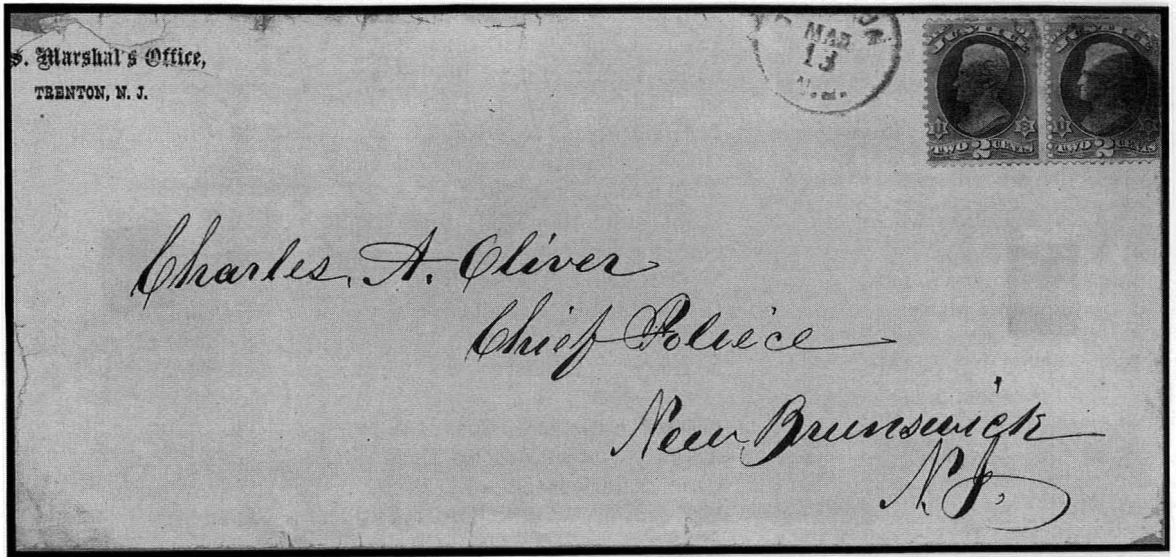 S. Marshal's Office,
TRENTON, N. J.
MAR
13
N.J.
JUSTICE
U S
TWO 2 CENTS
JUSTICE
U S
TWO 2 CENTS
Charles, A. Oliver
Chief Poliece
New Brunswick
N.J.